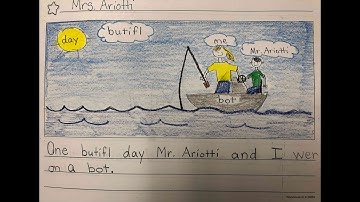 Mrs. Ariotti
day
butifl
me
Mr. Ariotti
bot
One butifl day Mr. Ariotti and I wer
on a bot.